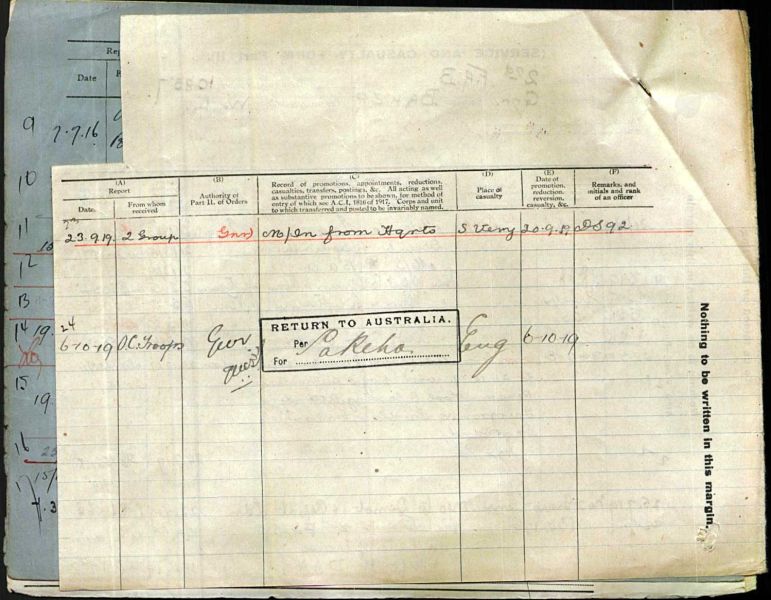 Date
9
7.7.16
10
11
12
13
14 19.
15
19.
16
(A)
Report
Date.
From whom
received
(B)
Authority of
Part II. of Orders
(C)
Record of promotions, appointments, reductions,
casualties, transfers, postings, &c. All acting as well
as substantive promotions to be shown, for method of
entry of which see A.C.I. 1816 of 1917. Corps and unit
to which transferred and posted to be invariably named.
(D)
Place of
casualty
(E)
Date of
promotion,
reduction,
reversion,
casualty, &c.
(F)
Remarks, and
initials and rank
of an officer
23.9.19. 2 Group Gnr M/In from Hqrts S Very 20.9.19 DS92
24
6-10-19 O.C. Troops Gnr
RETURN TO AUSTRALIA.
Per Pakeha
For
Eng 6-10-19
Nothing to be written in this margin.